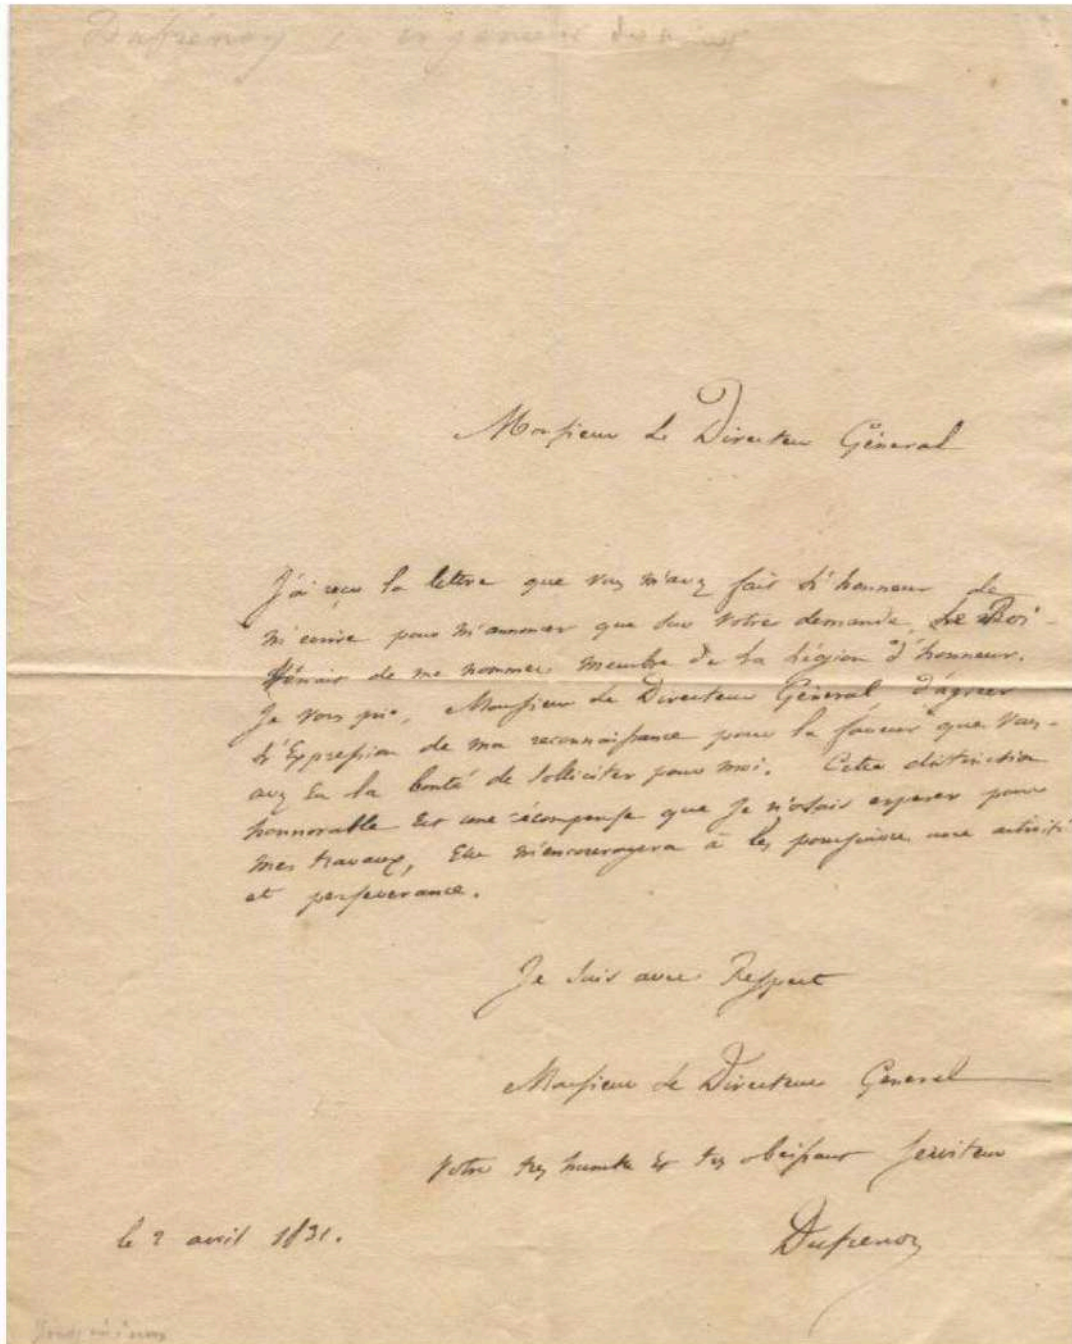 Dufrenoy ingenieur des mines
Monsieur Le Directeur Général
J'ai reçu la lettre que vous m'avez fait L'honneur de
m'ecrire pour m'annoncer que sur votre demande, Le Roi
Venait de me nommer membre de la Légion d'honneur.
Je vous prie, Monsieur Le Directeur Général d'agréer
L'Expression de ma reconnaissance pour la faveur que vous
avez eu la bonté de solliciter pour moi. Cette distinction
honnorable Est une récompense que Je n'osais esperer pour
mes travaux, Elle m'encouragera à les poursuivre avec activité
et perseverance.
Je suis avec Respect
Monsieur Le Directeur General
Votre très humble Et très obeissant serviteur
le 2 avril 1831.
Dufrenoy